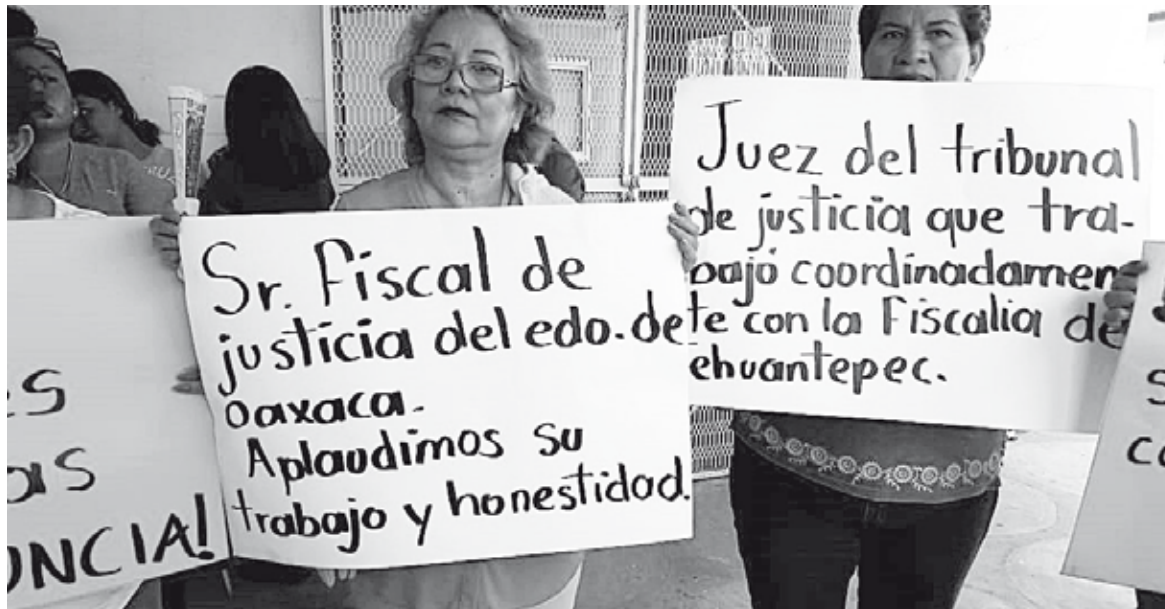 UNCIA!
Sr. Fiscal de
justicia del edo. de
Oaxaca.
Aplaudimos su
trabajo y honestidad.
Juez del tribunal
de justicia que tra-
bajó coordinadamen
te con la Fiscalia de
ehuantepec.